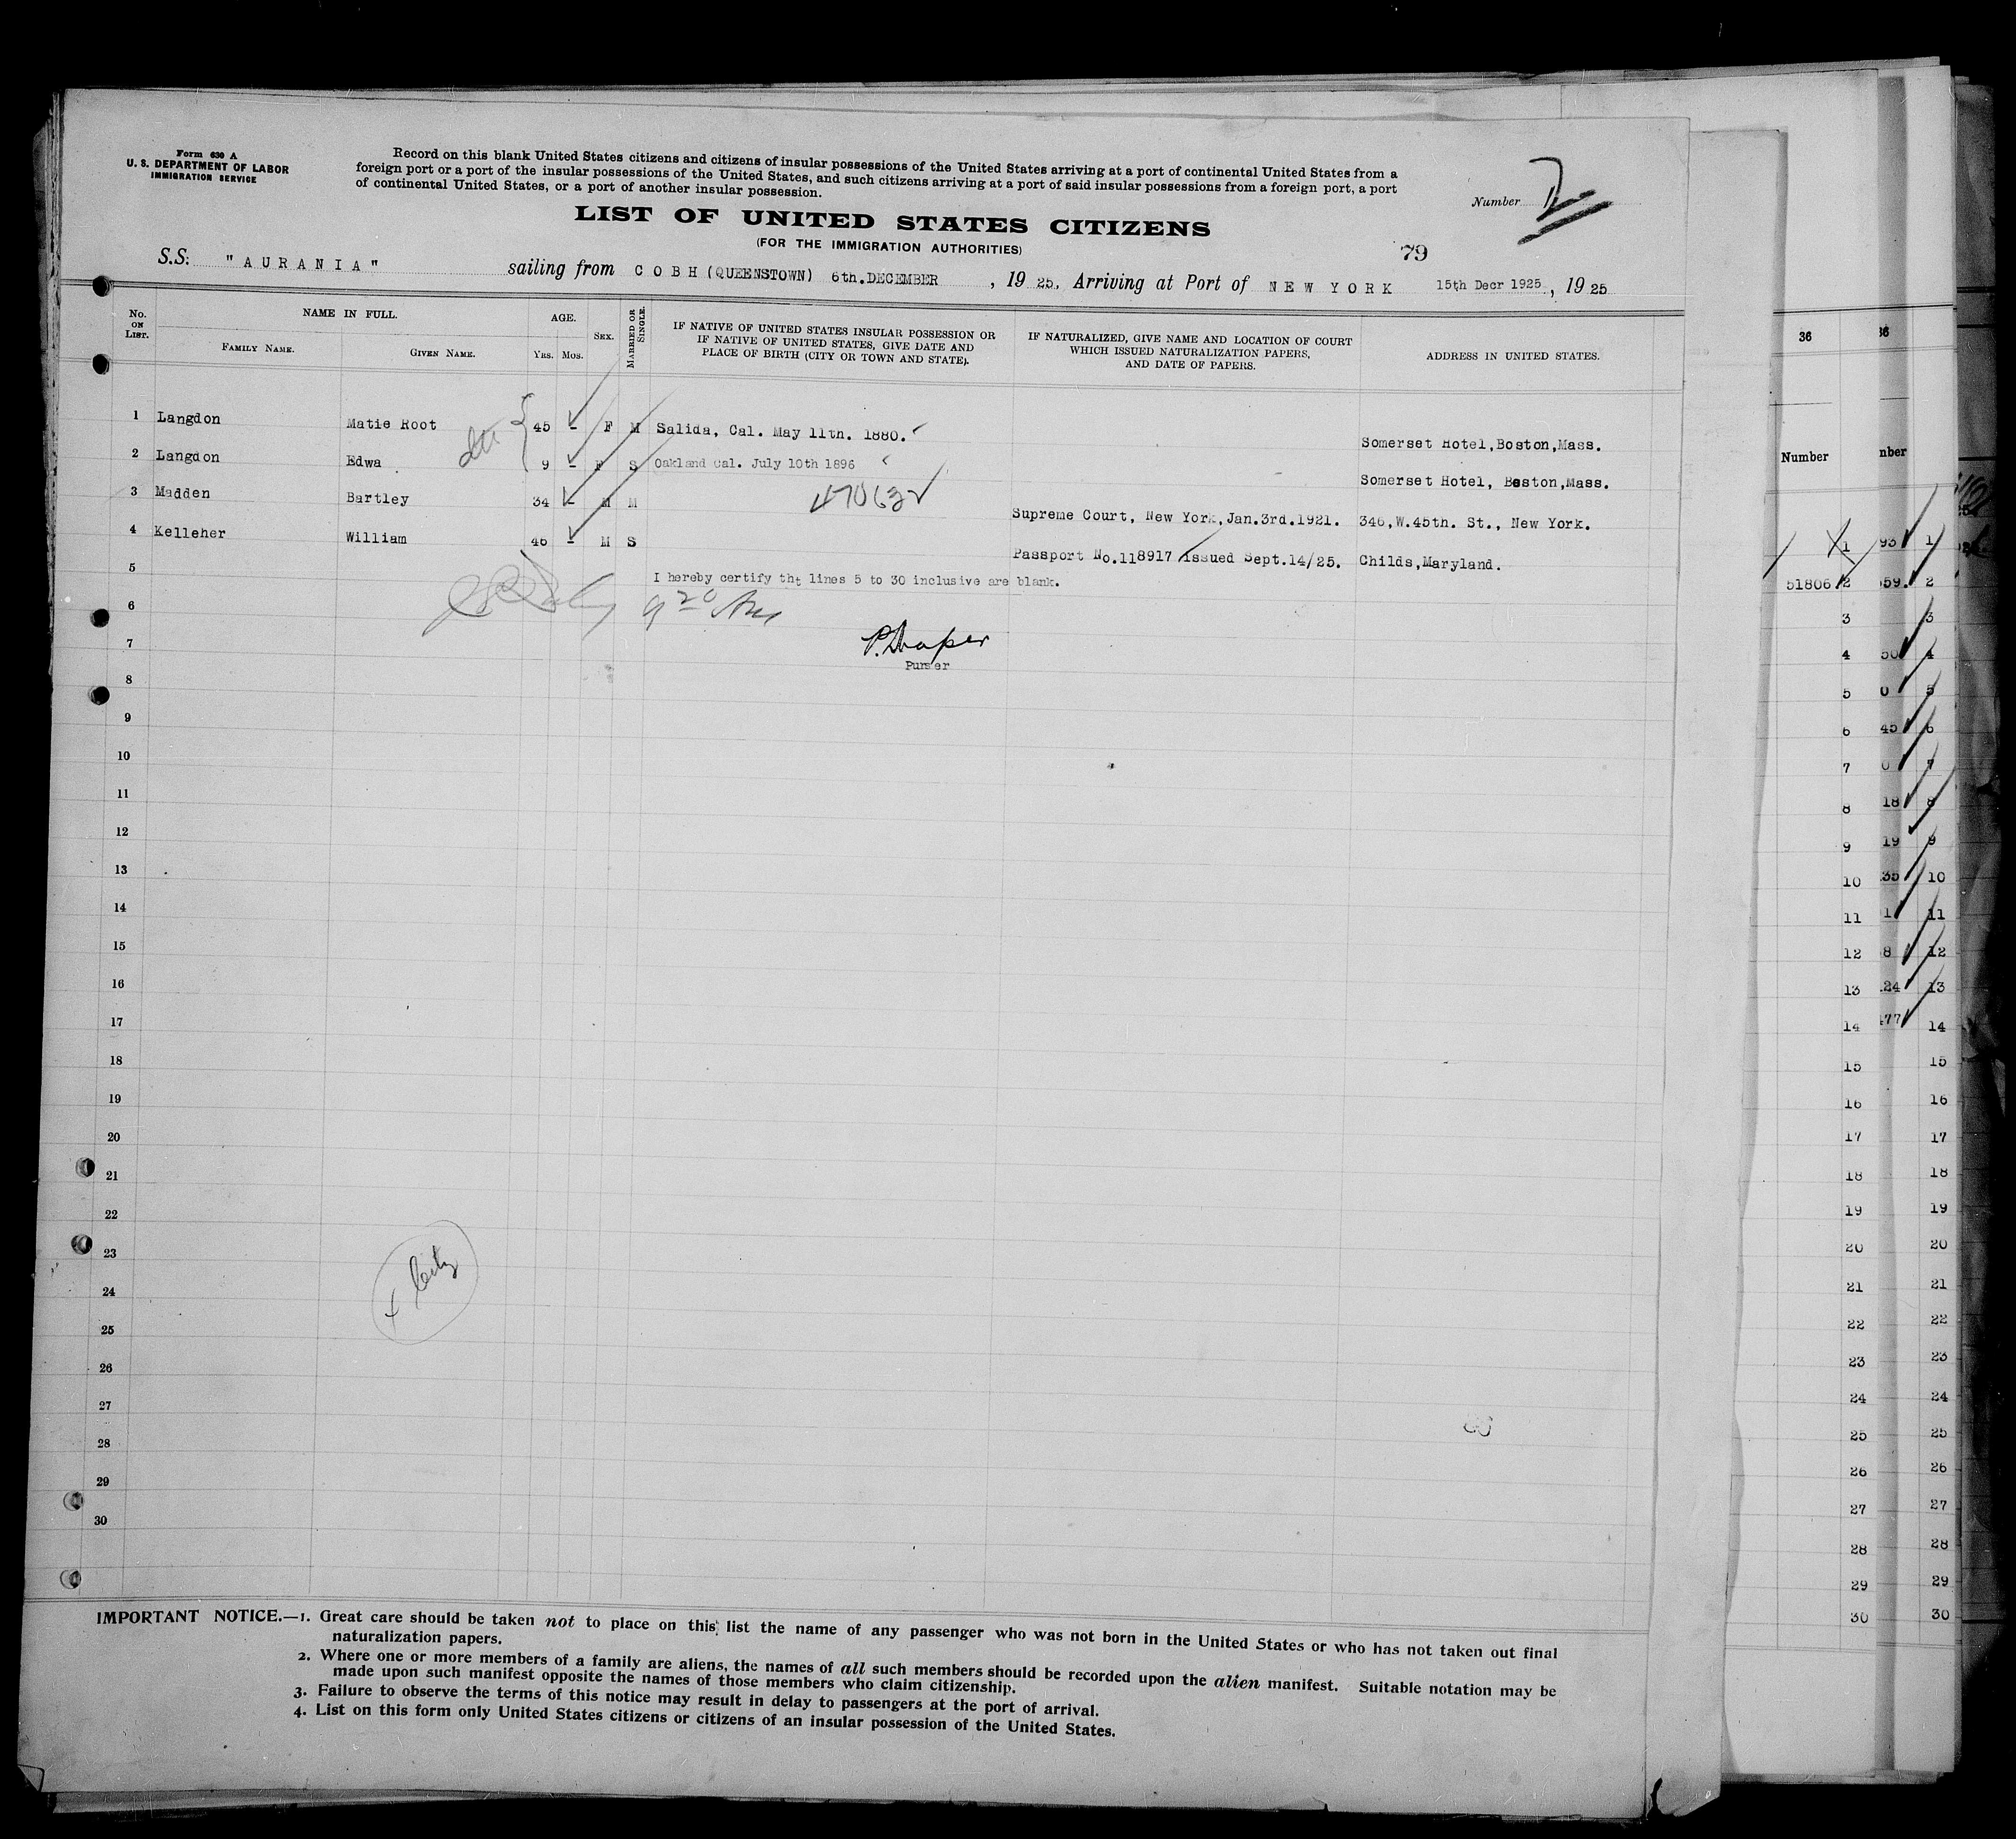 Form 630 A
U. S. DEPARTMENT OF LABOR
IMMIGRATION SERVICE
Record on this blank United States citizens and citizens of insular possessions of the United States arriving at a port of continental United States from a
foreign port or a port of the insular possessions of the United States, and such citizens arriving at a port of said insular possessions from a foreign port, a port
of continental United States, or a port of another insular possession.
Number 2
LIST OF UNITED STATES CITIZENS
(FOR THE IMMIGRATION AUTHORITIES)
79
S.S. "AURANIA" sailing from COBH (QUEENSTOWN) 6th.DECEMBER, 19 25, Arriving at Port of NEW YORK 15th Decr 1925, 19 25
No. ON LIST.
NAME IN FULL.
FAMILY NAME.
GIVEN NAME.
AGE.
YRS. MOS.
SEX.
MARRIED OR SINGLE.
IF NATIVE OF UNITED STATES INSULAR POSSESSION OR
IF NATIVE OF UNITED STATES, GIVE DATE AND
PLACE OF BIRTH (CITY OR TOWN AND STATE).
IF NATURALIZED, GIVE NAME AND LOCATION OF COURT
WHICH ISSUED NATURALIZATION PAPERS,
AND DATE OF PAPERS.
ADDRESS IN UNITED STATES.
1 Langdon Matie Root 45 - F M Salida, Cal. May 11th. 1880. Somerset Hotel,Boston,Mass.
2 Langdon Edwa 9 - F S Oakland Cal. July 10th 1896 Somerset Hotel, Boston,Mass.
3 Madden Bartley 34 - M M 470632 Supreme Court, New York,Jan.3rd.1921. 346,W.45th. St., New York.
4 Kelleher William 46 - M S Passport No.118917 issued Sept.14/25. Childs,Maryland.
5 I hereby certify tht lines 5 to 30 inclusive are blank.
6
7 P.Draper
Purser
8
9
10
11
12
13
14
15
16
17
18
19
20
21
22
23 + City
24
25
26
27
28
29
30
IMPORTANT NOTICE.—1. Great care should be taken not to place on this list the name of any passenger who was not born in the United States or who has not taken out final
naturalization papers.
2. Where one or more members of a family are aliens, the names of all such members should be recorded upon the alien manifest. Suitable notation may be
made upon such manifest opposite the names of those members who claim citizenship.
3. Failure to observe the terms of this notice may result in delay to passengers at the port of arrival.
4. List on this form only United States citizens or citizens of an insular possession of the United States.
36
Number
1
51806 2
3
4
5
6
7
8
9
10
11
12
13
14
15
16
17
18
19
20
21
22
23
24
25
26
27
28
29
30
36
nber
93 1
59. 2
3
50 4
0 5
45 6
0 7
18 8
19 9
35 10
1 11
8 12
24 13
477 14
15
16
17
18
19
20
21
22
23
24
25
26
27
28
29
30